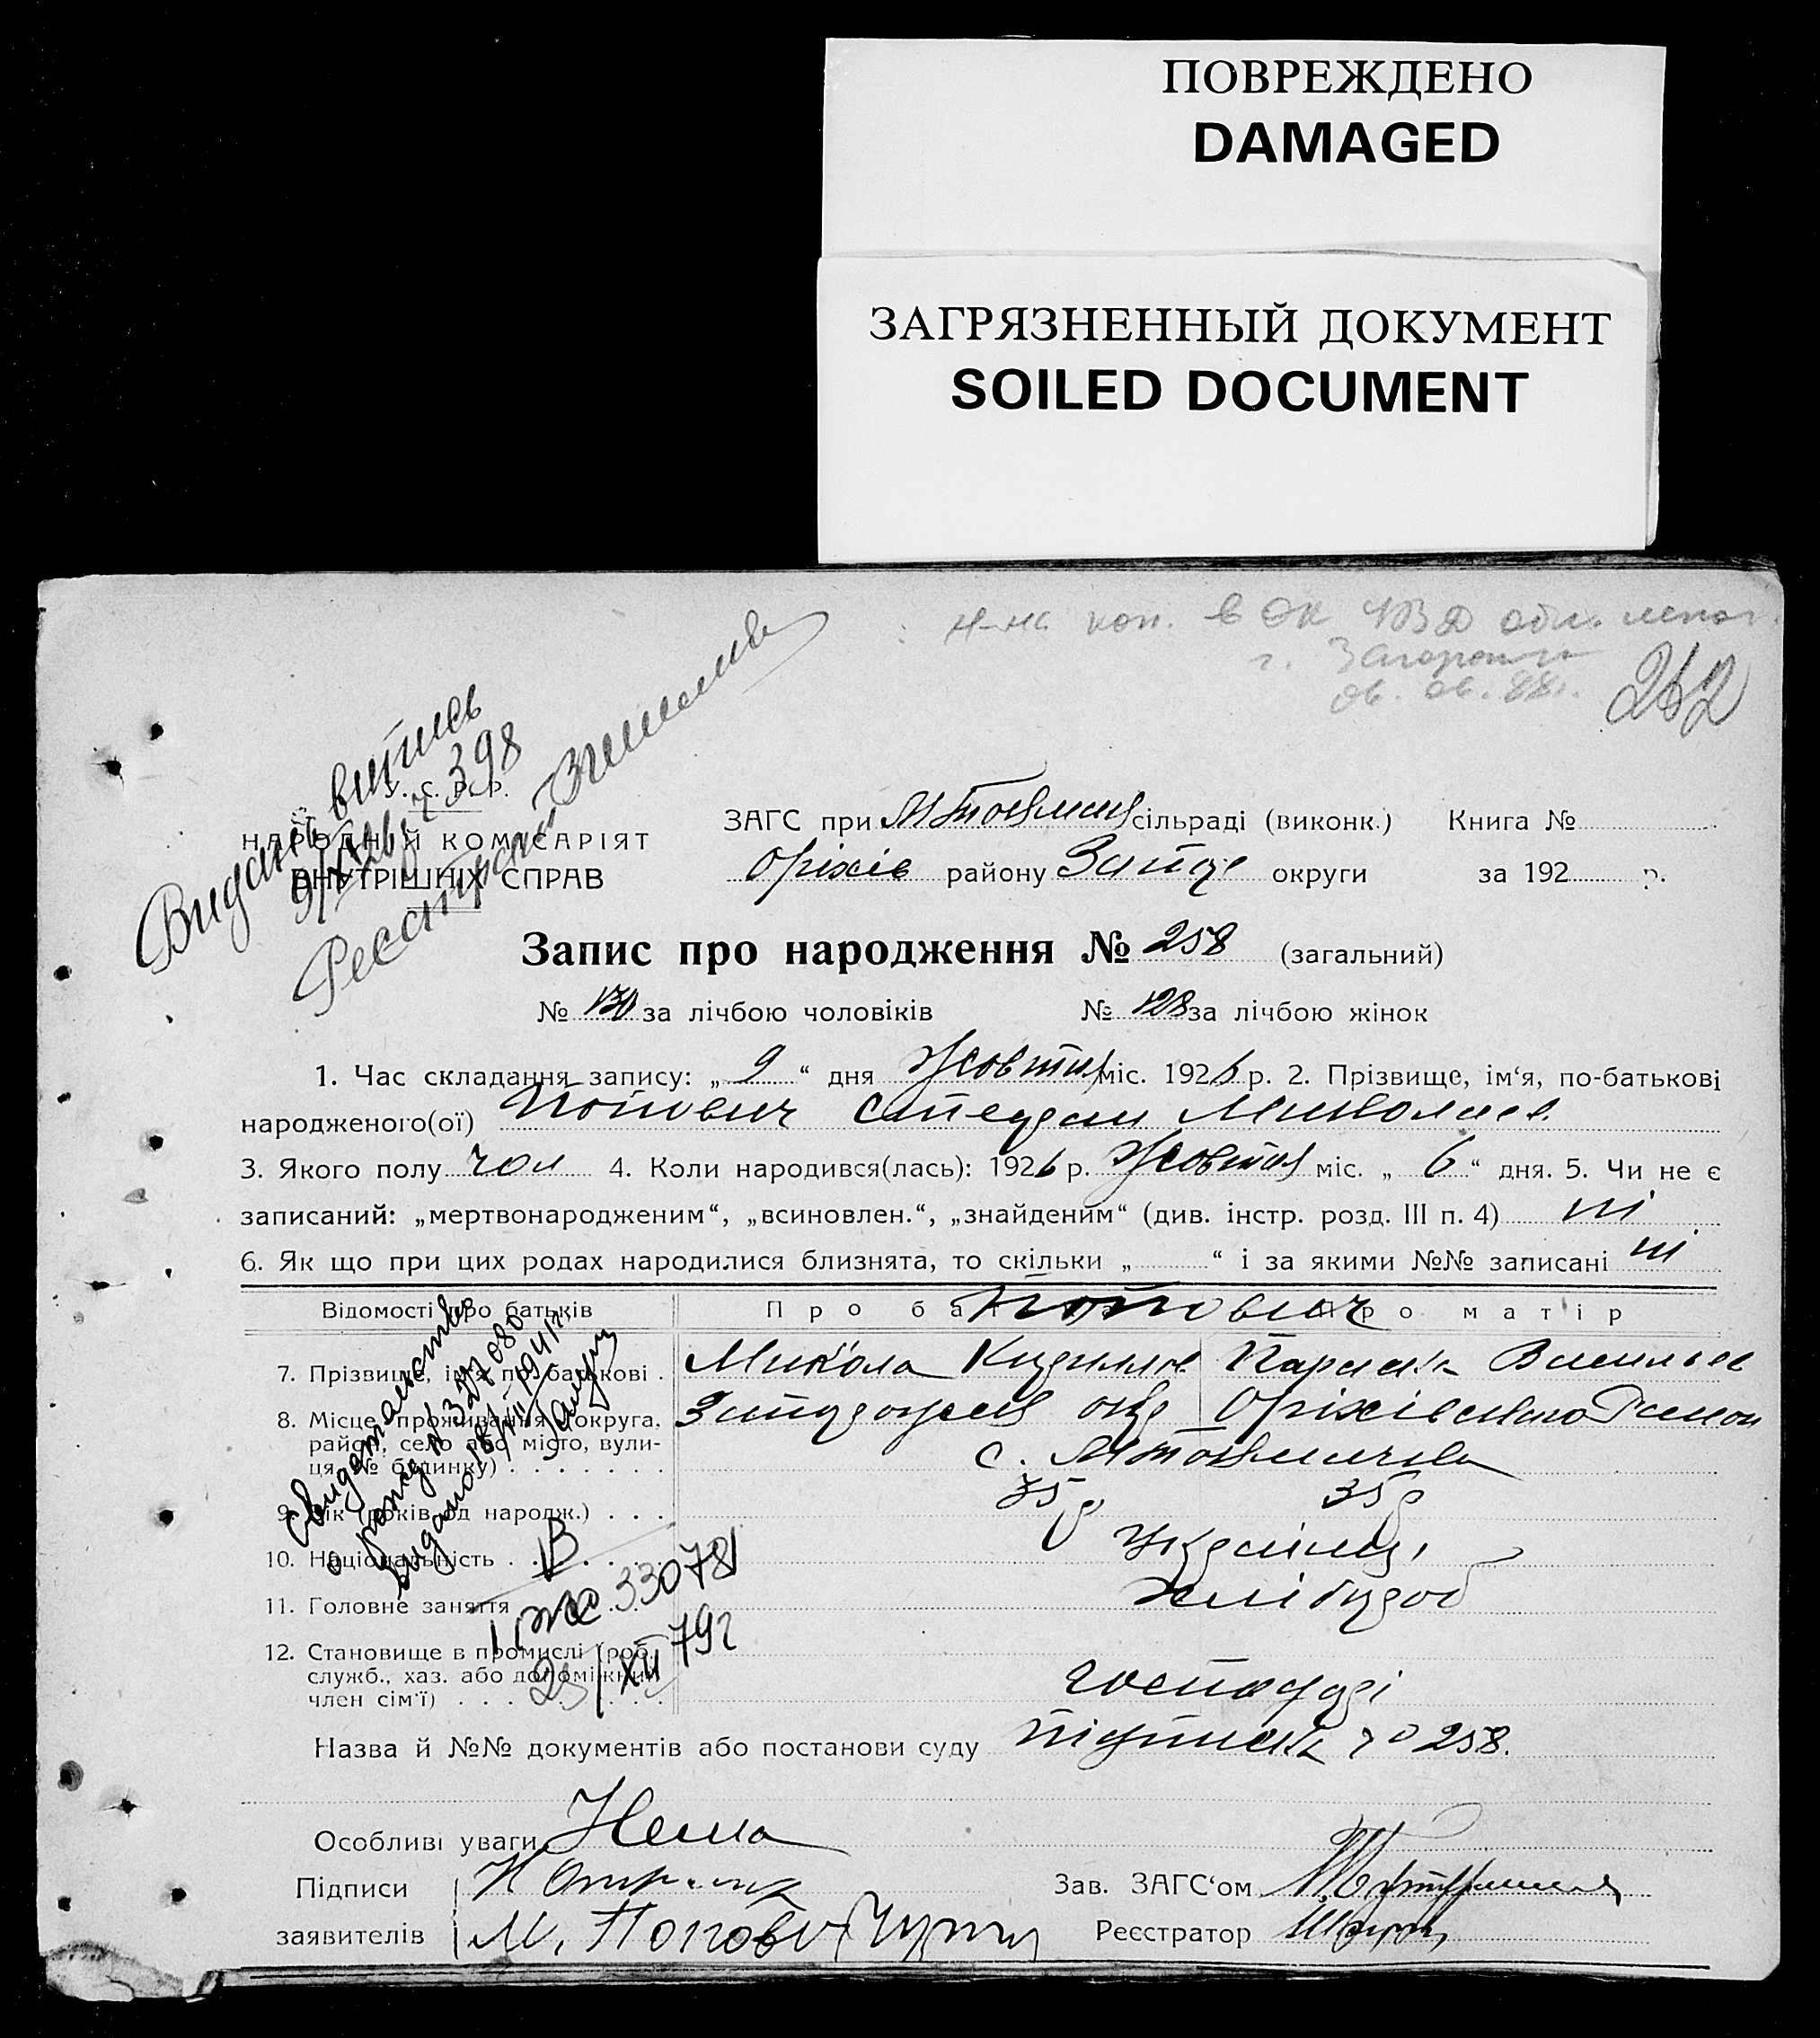 ПОВРЕЖДЕНО
DAMAGED
ЗАГРЯЗНЕННЫЙ ДОКУМЕНТ
SOILED DOCUMENT
коп. в
г.
06. 06. 88г.
262
Видан витись
9/XI 26 398
У. С. Р. Р.
НАРОДНІЙ КОМІСАРІЯТ
ВНУТРІШНІХ СПРАВ
ЗАГС при сільраді (виконк.) Книга №
Оріхів району Запор округи за 192 р.
Запис про народження № 258 (загальний)
№ 130 за лічбою чоловіків № 128 за лічбою жінок
1. Час складання запису: „ 9 “ дня Жовтня міс. 1926 р. 2. Прізвище, ім‘я, по-батькові
народженого(ої) Попович Степан Миколаев
3. Якого полу чол 4. Коли народився(лась): 1926 р. Жовтня міс. „ 6 “ дня. 5. Чи не є
записаний: „мертвонародженим“, „всиновлен.“, „знайденим“ (див. інстр. розд. III п. 4) ні
6. Як що при цих родах народилися близнята, то скільки „ “ і за якими №№ записані ні
Відомості про батьків Про батька Попович Про матір
7. Прізвище, ім‘я по-батькові . Микола Кирилов Параска Васильев
8. Місце проживання (округа, Запорожська окр Оріхівського Район
район, село або місто, вули-
ця, № будинку) . . . . . . . с.
9. Вік (років од народж.) . . . 35 р 35 р
10. Національність . . . . . . Українці
11. Головне заняття хлібороб
12. Становище в промислі (роб.,
служб., хаз. або допоміжний
член сім‘ї) . . . . . . . . . господарі
Свидетельство
о рожд № 327080
Видано 18/VII 1941г.
33078
25/XII 79г
Назва й №№ документів або постанови суду підписка до 258.
Особливі уваги Нема
Підписи
заявителів М. Попович
Зав. ЗАГС‘ом
Реєстратор